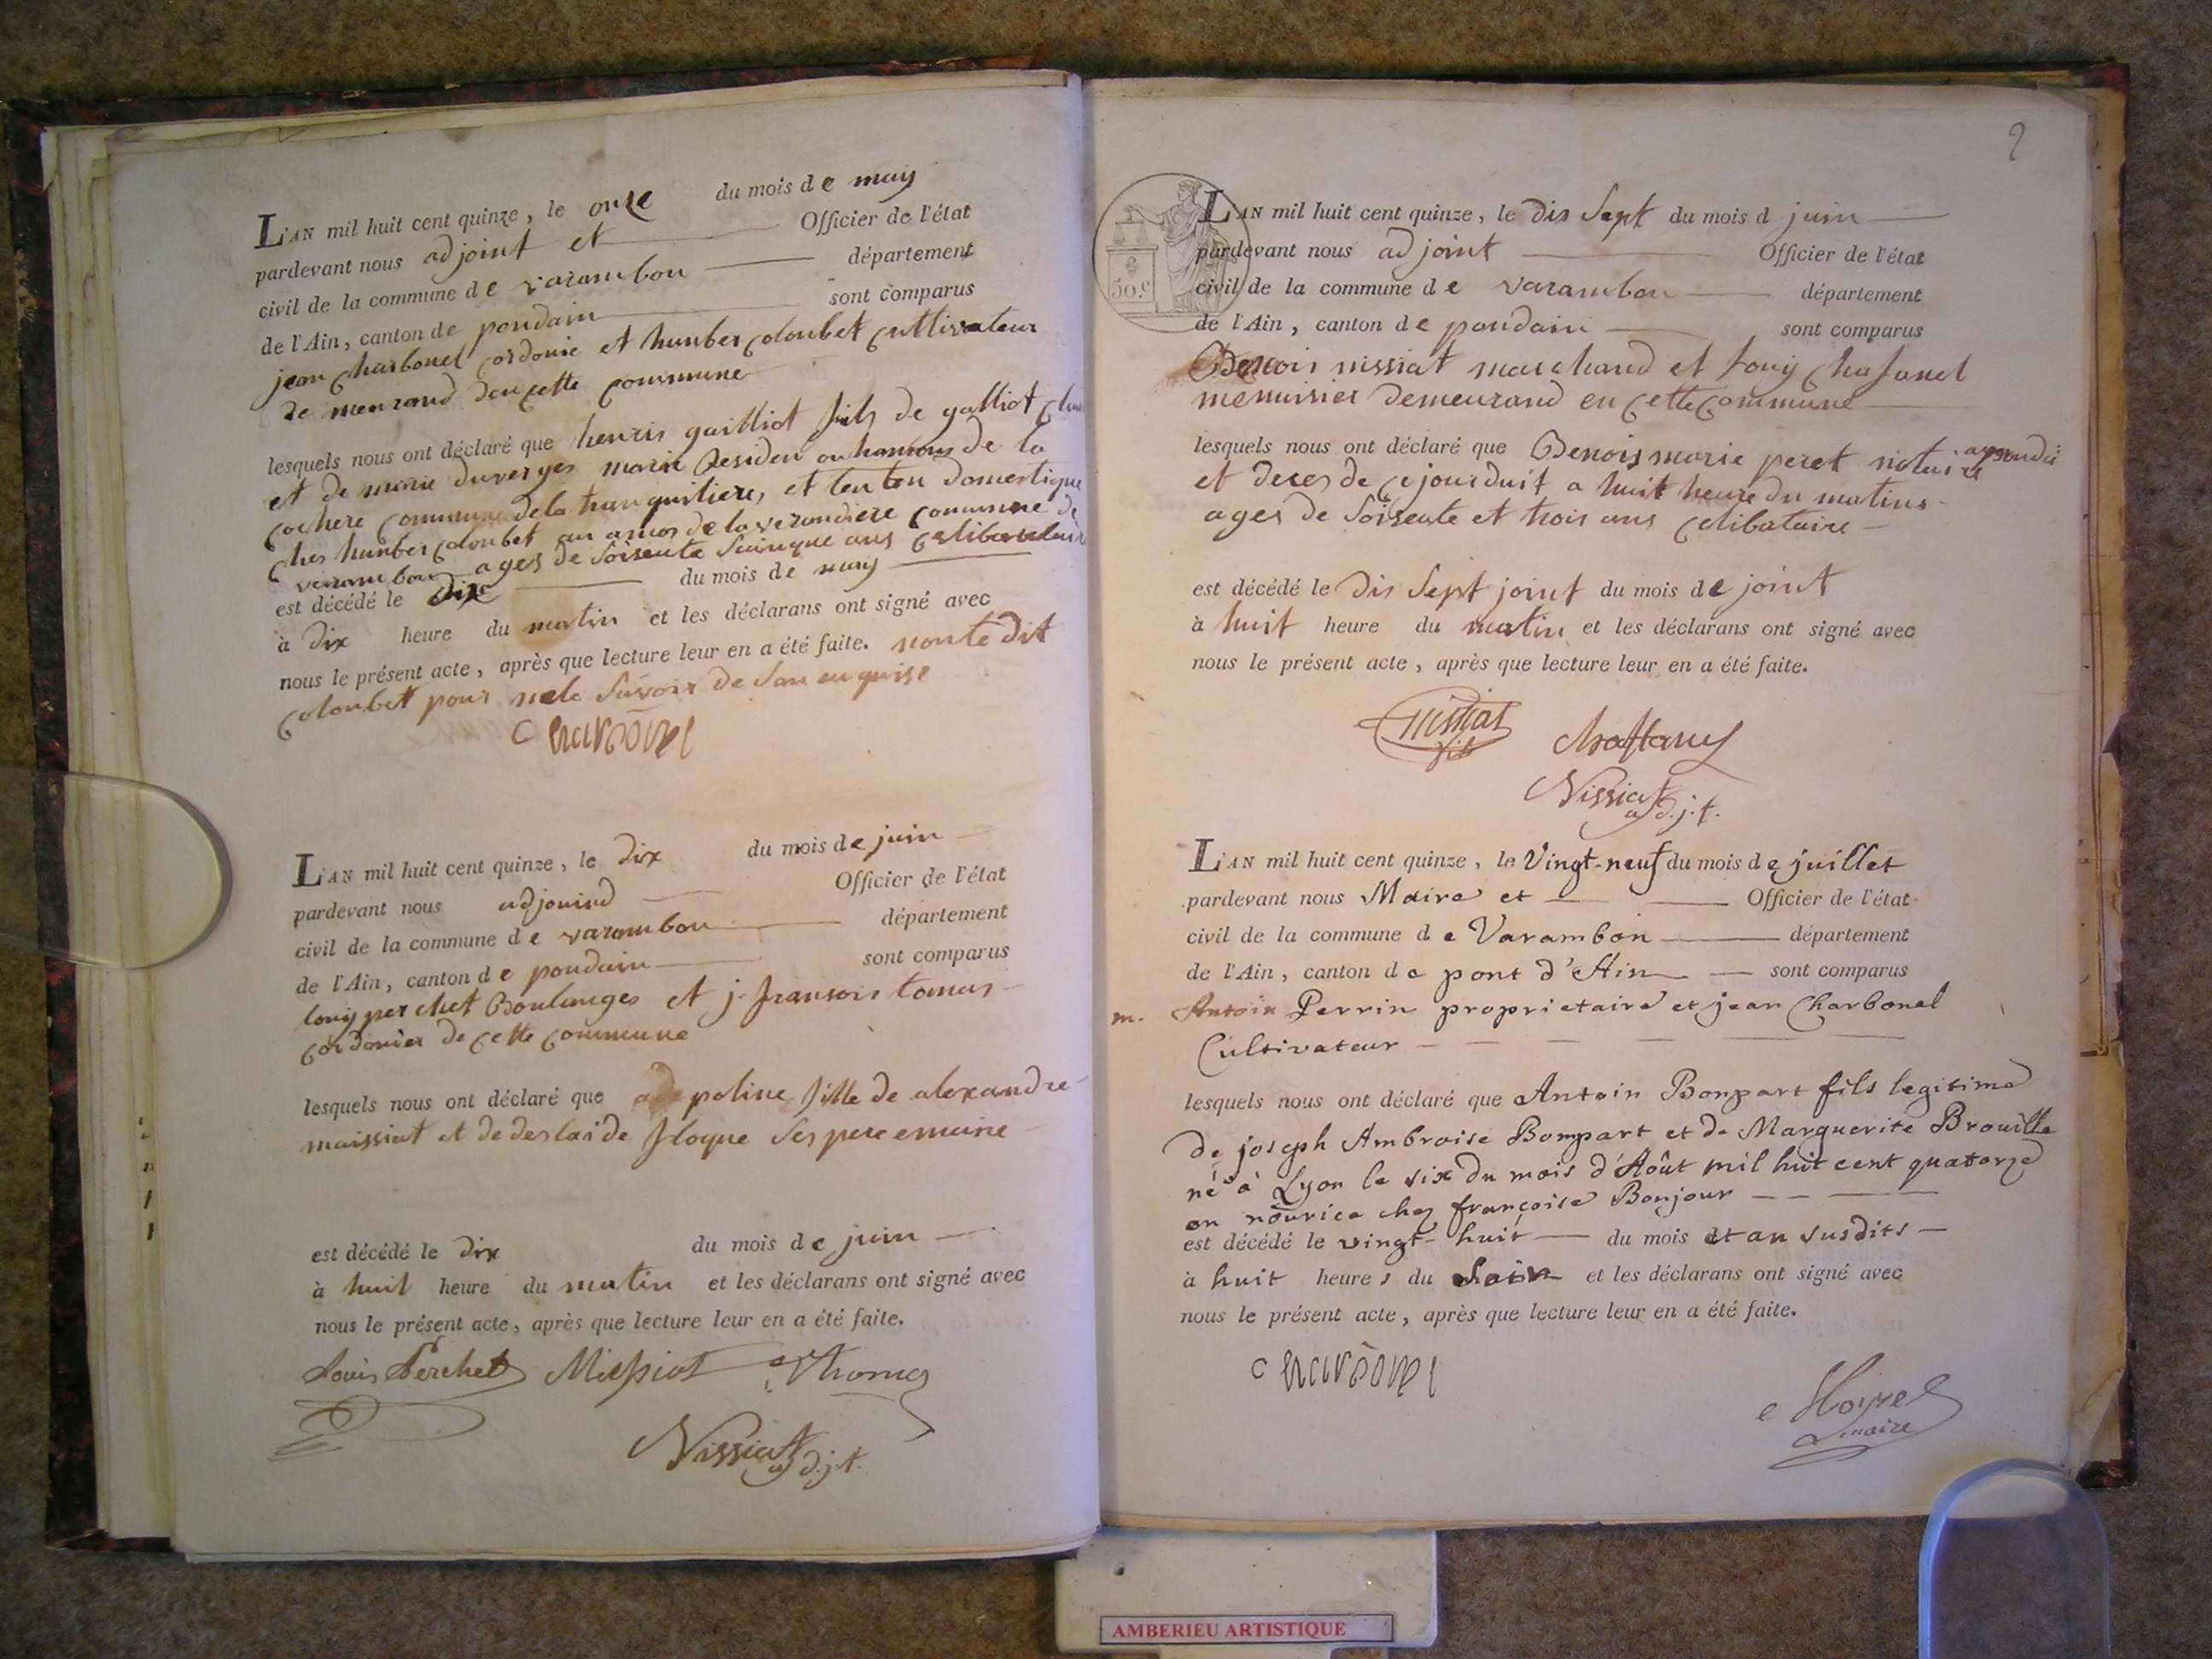 L'AN mil huit cent quinze, le onze du mois de may
pardevant nous adjoint et Officier de l'état
civil de la commune de varambon département
de l'Ain, canton de pondain sont comparus
jean charbonel cordonie et humber coloubet cultivateur
de meurand den cette commune
lesquels nous ont déclaré que henris gailliot fils de galliot
et de marie duverges marie Residen au hamous de la
cochere commune dela tranquiliere, et tenten domestique
ches humber coloubet au amos de la verandiere commune de
varambon ages de soisente sainque ans celibateire
est décédé le dix du mois de may
à dix heure du matin et les déclarans ont signé avec
nous le présent acte, après que lecture leur en a été faite. non le dit
coloubet pour nele savoir de san enquise
charbonel
L'AN mil huit cent quinze, le dix du mois de juin
pardevant nous adjouind Officier de l'état
civil de la commune de varambon département
de l'Ain, canton de pondain sont comparus
louy perchet Boulanges et j. fransois tomas
cordonier de cette commune
lesquels nous ont déclaré que ade poline fille de alexandre
maissiat et de deslaide floque ses pere emeire
est décédé le dix du mois de juin
à huit heure du matin et les déclarans ont signé avec
nous le présent acte, après que lecture leur en a été faite.
Louis Perchet Messiat Thomas
Nissiat adjt.
2
L'AN mil huit cent quinze, le dis sept du mois d juin
pardevant nous adjoint Officier de l'état
50.c civil de la commune de varambon département
de l'Ain, canton de pondain sont comparus
Benois nissiat marchand et louy chafanel
menuisier demeurand en cette commune
lesquels nous ont déclaré que Benois marie peret notaire
et deces de cejourduit a huit heure du matins
ages de soiseute et trois ans celibataire
est décédé le dis sept joint du mois de joint
à huit heure du matin et les déclarans ont signé avec
nous le présent acte, après que lecture leur en a été faite.
nissiat fils chaffanel
Nissiat adjt.
L'AN mil huit cent quinze, le Vingt-neuf du mois de juillet
pardevant nous Maire et Officier de l'état
civil de la commune de Varambon département
de l'Ain, canton de pont d'Ain sont comparus
m. Antoin Perrin proprietaire et jean Charbonel
Cultivateur
lesquels nous ont déclaré que Antoin Bonpart fils legitime
de joseph Ambroise Bompart et de Marguerite Brouille
né à Lyon le six du mois d'Août mil huit cent quatorze
en nourice chez françoise Bonjour
est décédé le vingt-huit du mois et an susdits
à huit heures du soir et les déclarans ont signé avec
nous le présent acte, après que lecture leur en a été faite.
charbonel
maire
AMBERIEU ARTISTIQUE